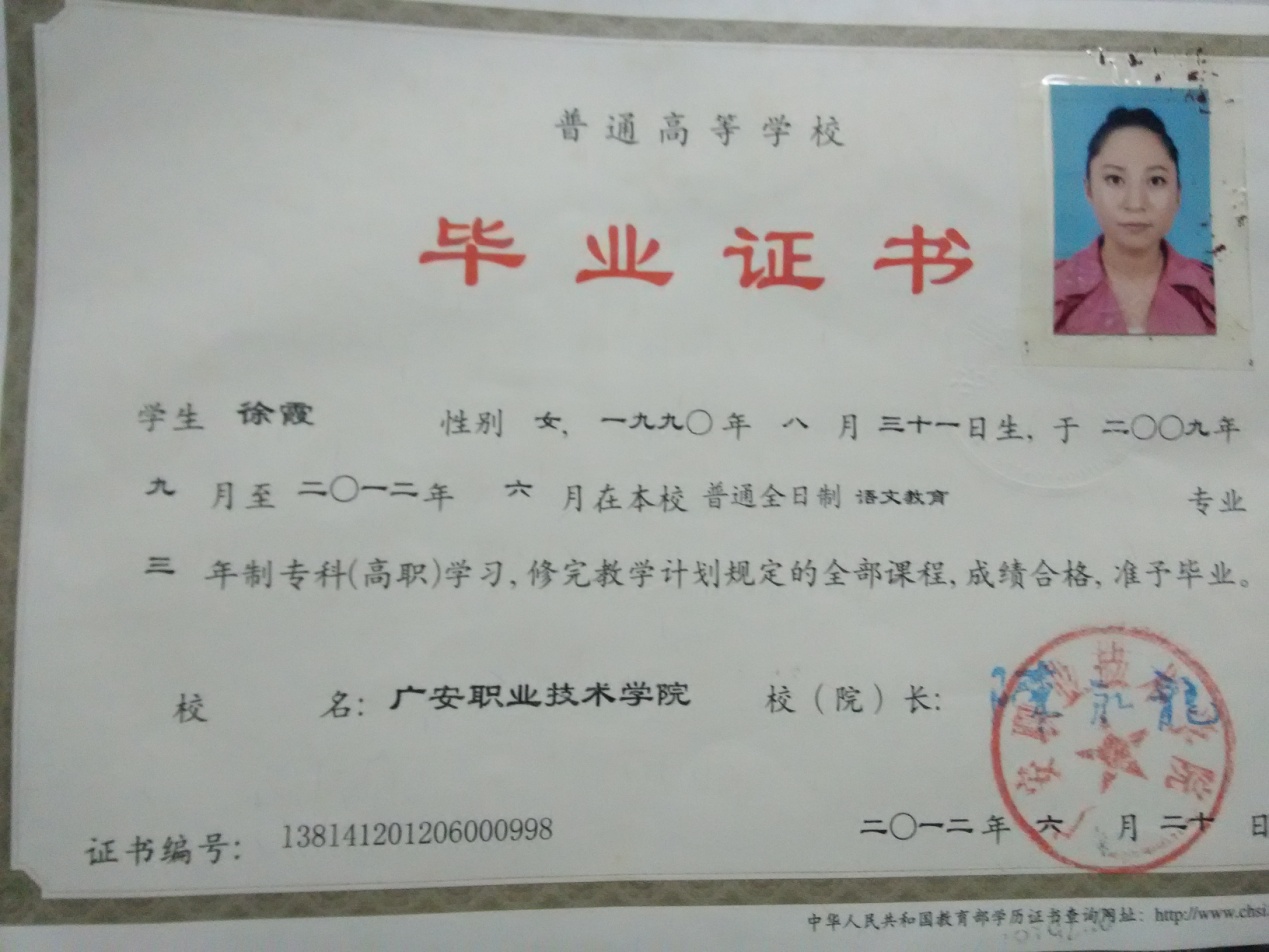 普通高等学校
毕业证书
学生 徐霞 性别 女, 一九九〇年 八 月 三十一日生, 于 二〇〇九年
九 月至 二〇一二年 六 月在本校 普通全日制 语文教育 专业
三 年制专科(高职)学习, 修完教学计划规定的全部课程, 成绩合格, 准予毕业。
校 名: 广安职业技术学院 校(院)长:
证书编号: 138141201206000998 二〇一二年 六 月 二十 日
中华人民共和国教育部学历证书查询网址: http://www.chsi.